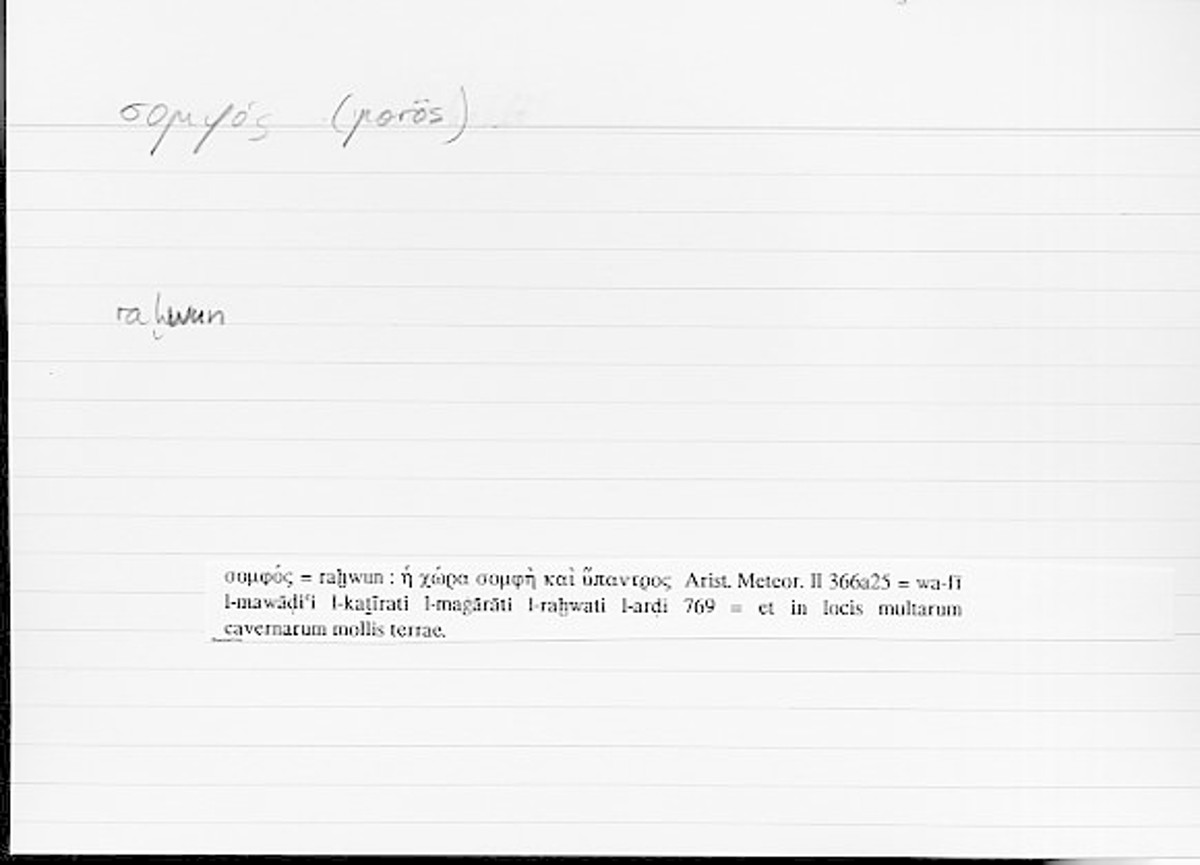 σομφός (porös)
raḫwun
σομφός = raḫwun : ἡ χώρα σομφὴ καὶ ὕπαντρος Arist. Meteor. II 366a25 = wa-fī
l-mawāḍiʿi l-kaṯīrati l-maġārāti l-raḫwati l-arḍi 769 = et in locis multarum
cavernarum mollis terrae.